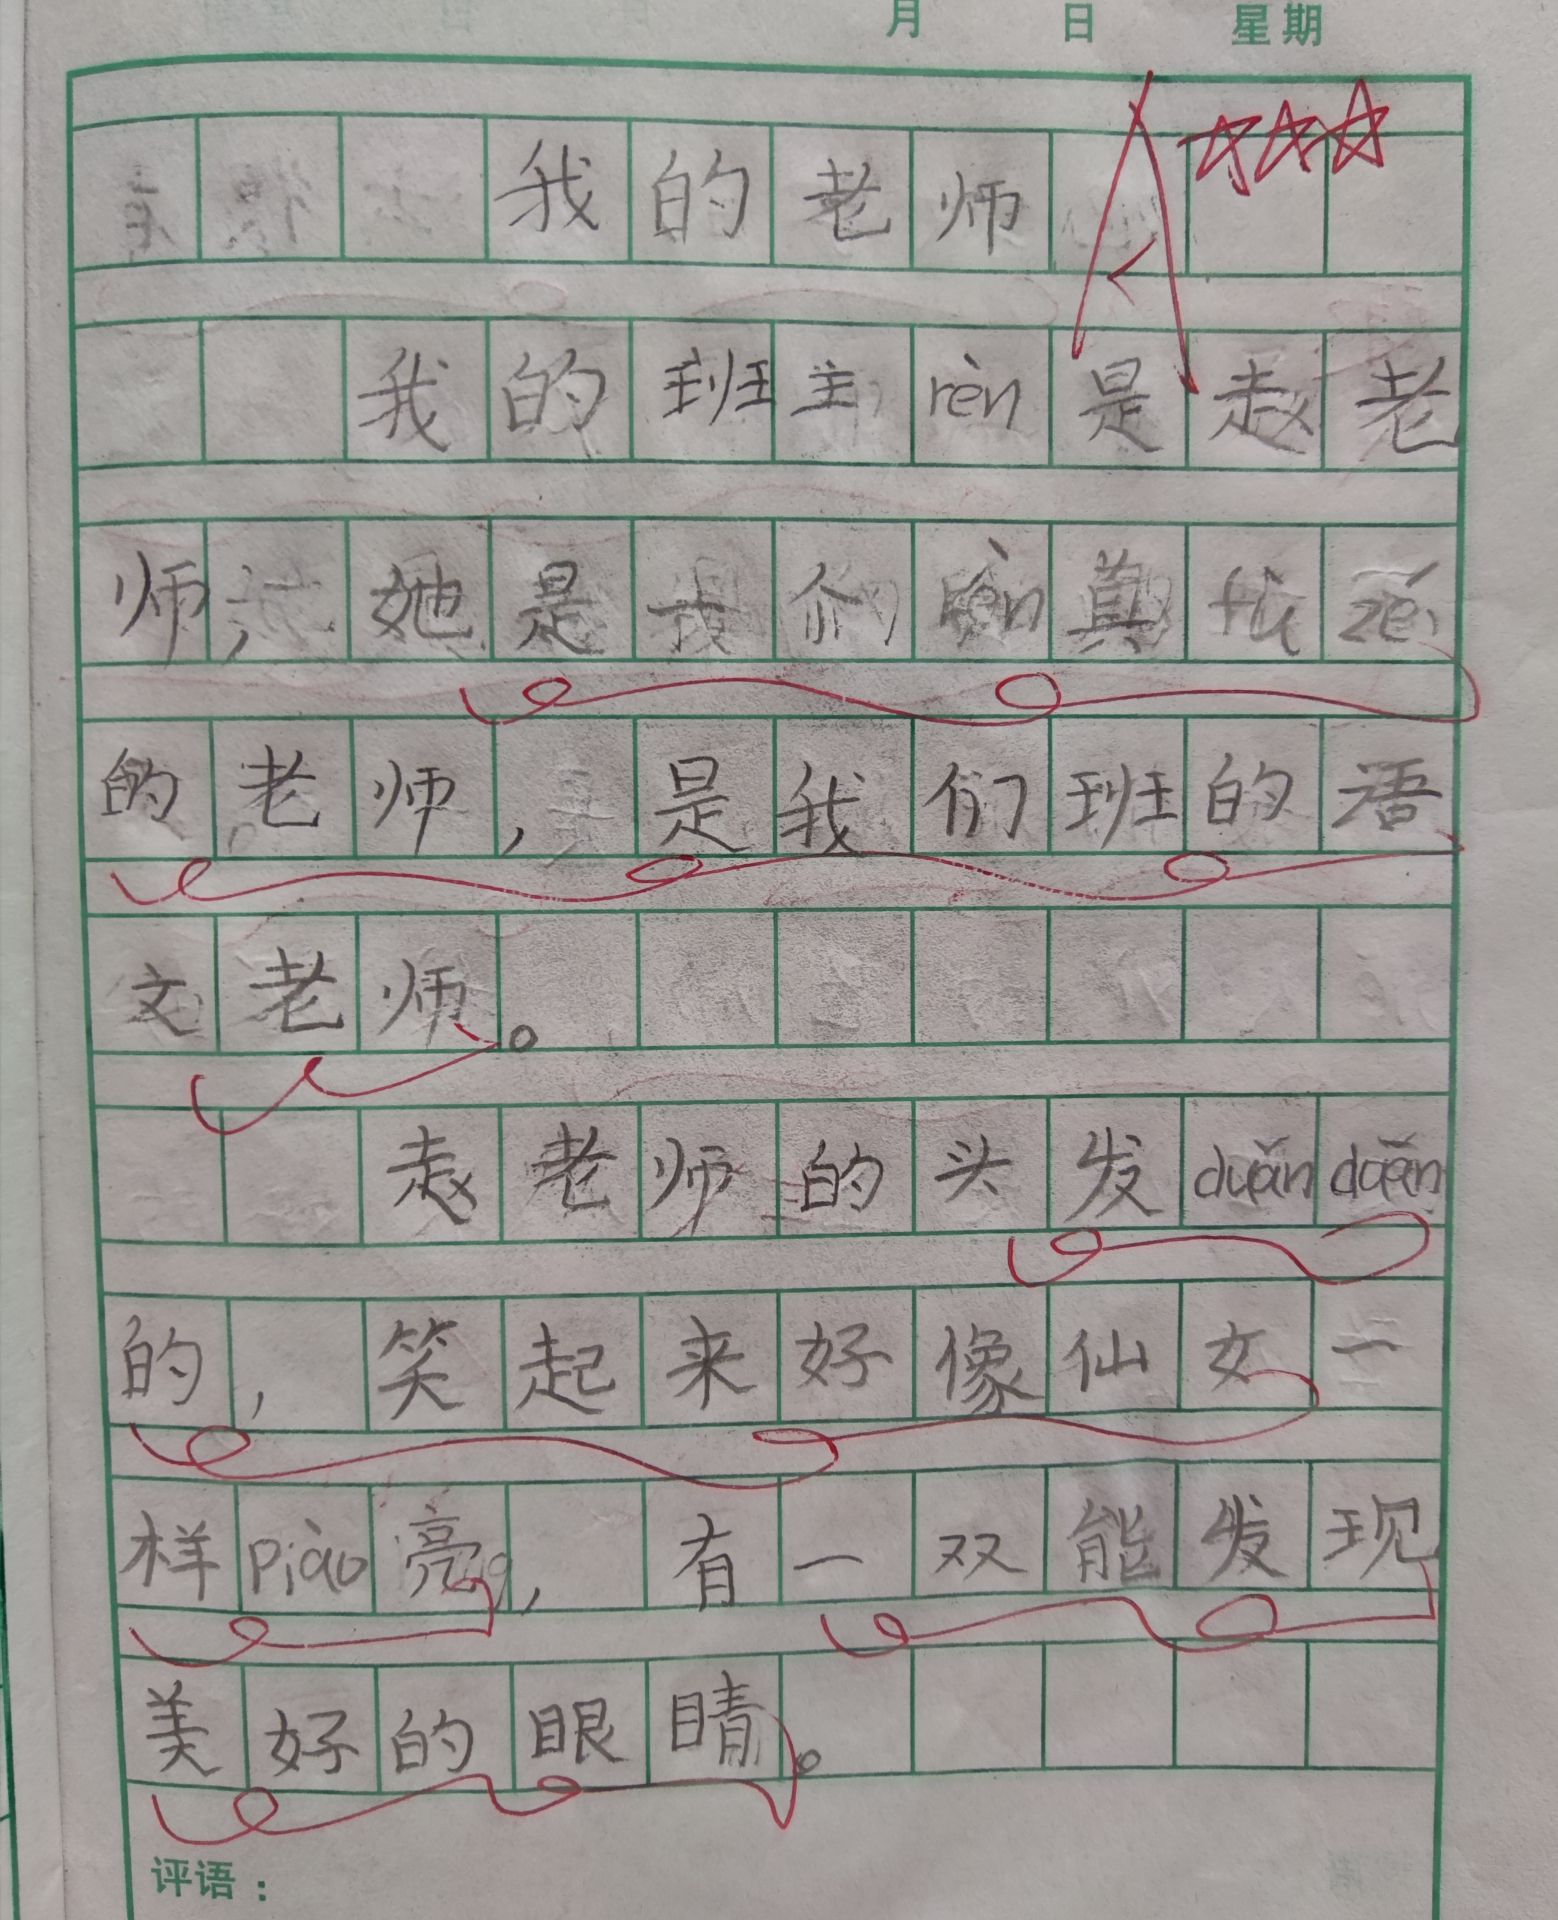 月 日 星期
我的老师
我的班主rèn是赵老
师,她是一个rèn真fù zé
的老师,是我们班的语
文老师。
赵老师的头发duǎn duǎn
的,笑起来好像仙女一
样piào亮,有一双能发现
美好的眼睛。
评语: